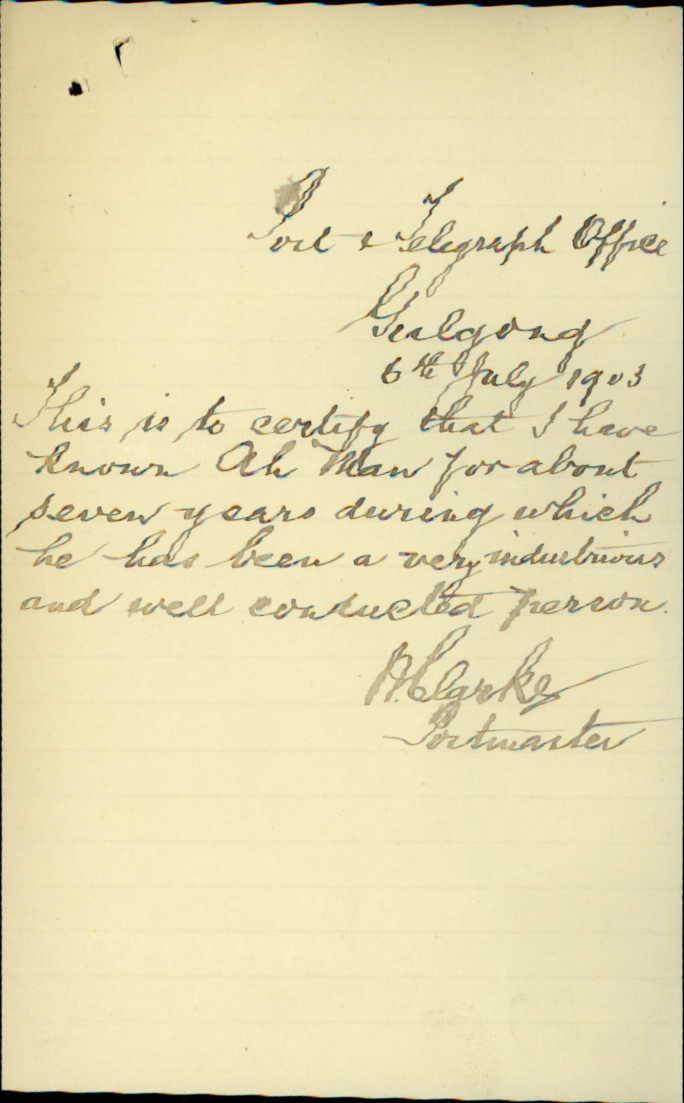 Post & Telegraph Office
Gulgong
6th July 1903
This is to certify that I have
known Ah Man for about
seven years during which
he has been a very industrious
and well conducted person.
Clarke
Postmaster